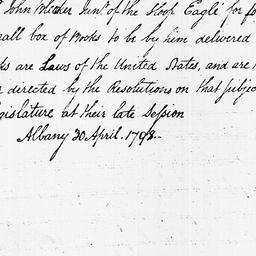 John Bleecker Junr of the Sloop Eagle for fo
all box of Books to be by him delivered
ks are Laws of the United States, and are
directed by the Resolutions on that subjec
gislature at their late Session
Albany 30 April. 1798.